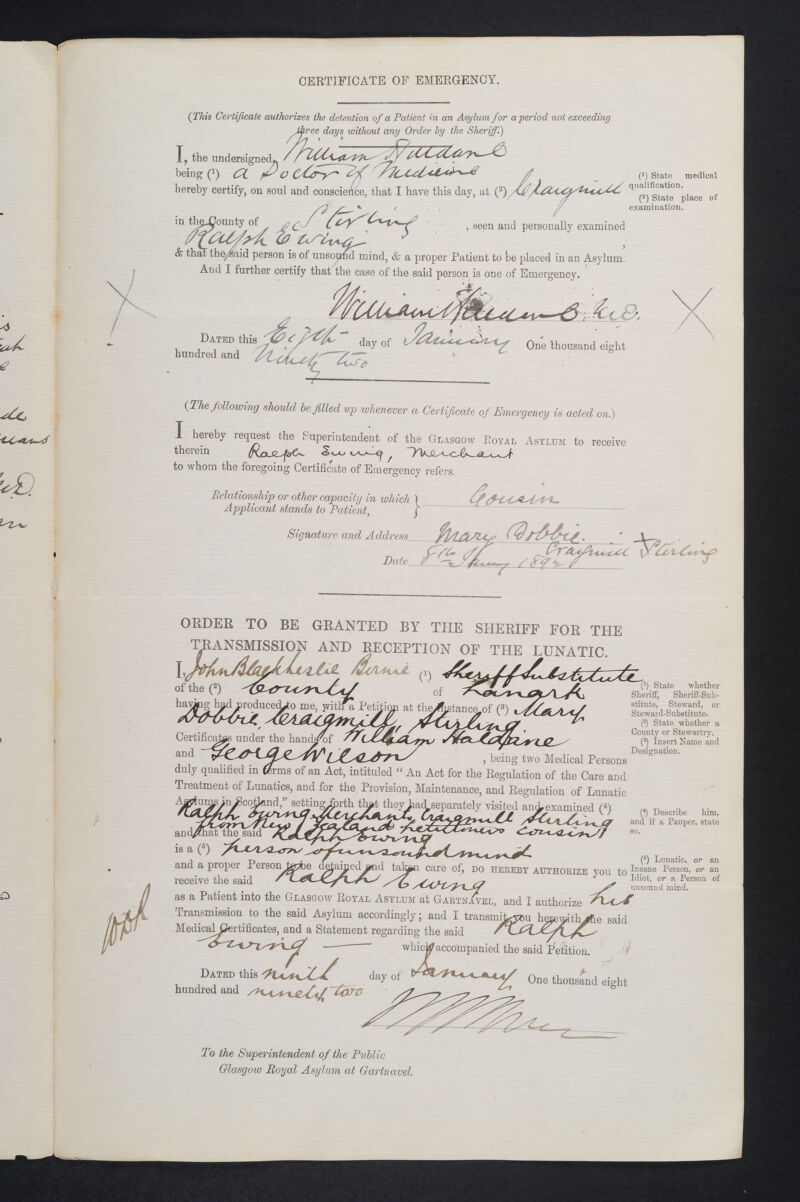 CERTIFICATE OF EMERGENCY.
(This Certificate authorizes the detention of a Patient in an Asylum for a period not exceeding
three days without any Order by the Sheriff.)
I, the undersigned, William Haldane
being (¹) a Doctor of Medicine
hereby certify, on soul and conscience, that I have this day, at (²) Craigmill
in the County of Stirling, seen and personally examined
Ralph Ewing,
& that the said person is of unsound mind, & a proper Patient to be placed in an Asylum.
And I further certify that the case of the said person is one of Emergency.
(¹) State medical
qualification.
(²) State place of
examination.
William Haldane M.D.
DATED this Eighth day of January One thousand eight
hundred and Ninety two
(The following should be filled up whenever a Certificate of Emergency is acted on.)
I hereby request the Superintendent of the GLASGOW ROYAL ASYLUM to receive
therein Ralph Ewing, Merchant
to whom the foregoing Certificate of Emergency refers.
Relationship or other capacity in which
Applicant stands to Patient, } Cousin
Signature and Address Mary Dobbie.
Craigmill Stirling
Date 8th Jany 1892
ORDER TO BE GRANTED BY THE SHERIFF FOR THE
TRANSMISSION AND RECEPTION OF THE LUNATIC.
I, John Birnie (¹) Sheriff Substitute
of the (²) County of Lanark
having had produced to me, with a Petition at the instance of (³) Mary
Dobbie, Craigmill, Stirling
Certificates under the hands of William Haldane
and George Wilson, being two Medical Persons
duly qualified in terms of an Act, intituled "An Act for the Regulation of the Care and
Treatment of Lunatics, and for the Provision, Maintenance, and Regulation of Lunatic
Asylums in Scotland," setting forth that they had separately visited and examined (⁴)
Ralph Ewing, Merchant, Craigmill Stirling
from New Zealand petitioners cousin
and that the said Ralph Ewing
is a (⁵) person of unsound mind
and a proper Person to be detained and taken care of, DO HEREBY AUTHORIZE you to
receive the said Ralph Ewing
as a Patient into the GLASGOW ROYAL ASYLUM AT GARTNAVEL, and I authorize his
Transmission to the said Asylum accordingly; and I transmit you herewith the said
Medical Certificates, and a Statement regarding the said Ralph
Ewing — which accompanied the said Petition.
DATED this ninth day of January One thousand eight
hundred and ninety two
(¹) State whether
Sheriff, Sheriff-Sub-
stitute, Steward, or
Steward-Substitute.
(²) State whether a
County or Stewartry.
(³) Insert Name and
Designation.
(⁴) Describe him,
and if a Pauper, state
so.
(⁵) Lunatic, or an
Insane Person, or an
Idiot, or a Person of
unsound mind.
To the Superintendent of the Public
Glasgow Royal Asylum at Gartnavel.